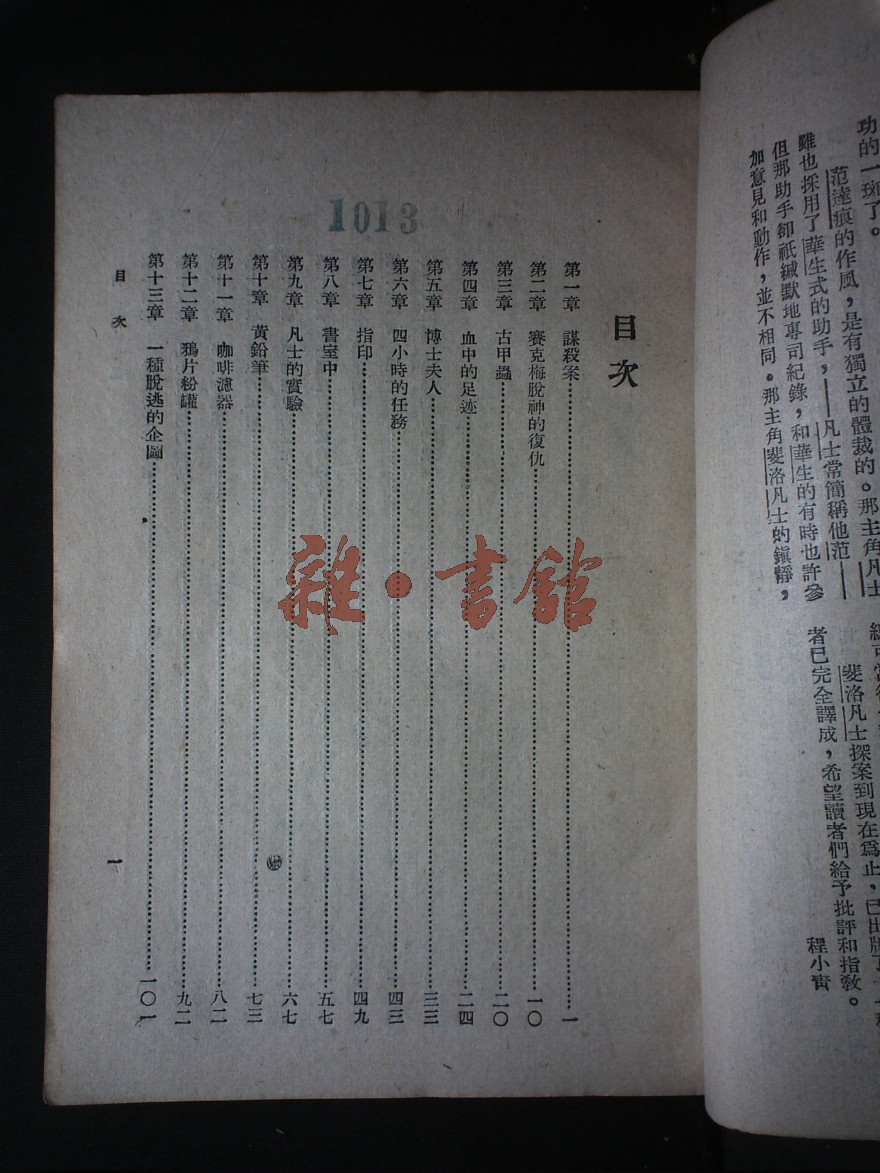 功的一斑了。
范達痕的作風，是有獨立的體裁的。那主角凡士
雖也採用了華生式的助手，——凡士常簡稱他范——
但那助手卻祇緘默地專司紀錄，和華生的有時也許參
加意見和動作，並不相同。那主角斐洛凡士的鎭靜，
斐洛凡士探案到現在爲止，已出版了
者已完全譯成，希望讀者們給予批評和指教。
程小青
1013
目次
第一章 謀殺案 一
第二章 賽克梅脫神的復仇 一〇
第三章 古甲蟲 二〇
第四章 血中的足迹 二四
第五章 博士夫人 三三
第六章 四小時的任務 四三
第七章 指印 四九
第八章 書室中 五七
第九章 凡士的實驗 六七
第十章 黃鉛筆 七三
第十一章 咖啡濾器 八二
第十二章 鴉片粉罐 九二
第十三章 一種脫逃的企圖 一〇一
目次
一
雜·書館